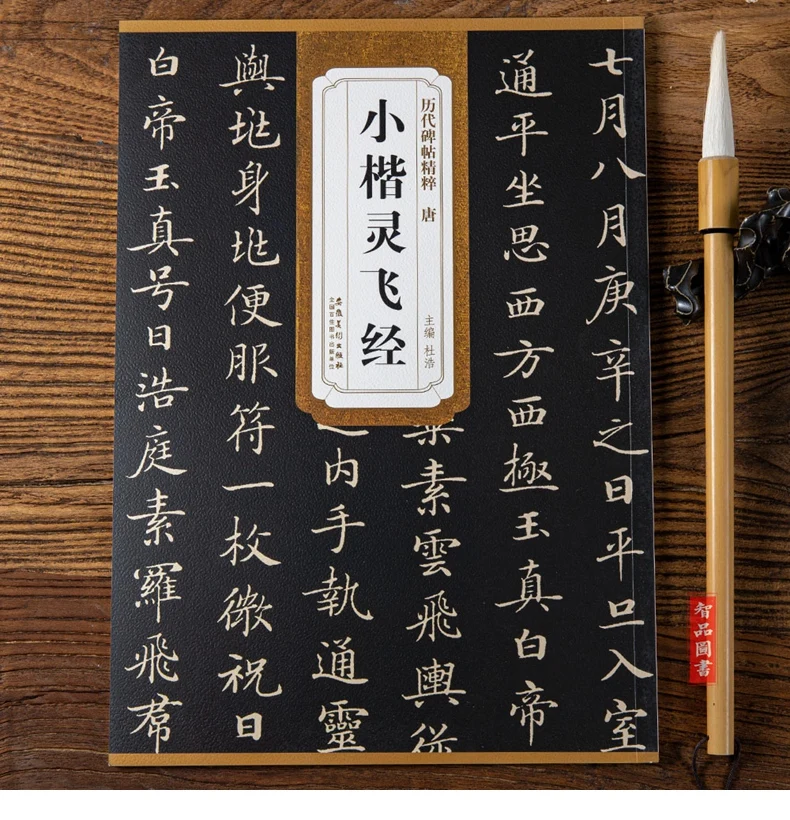 七月八月庚辛之日平旦入室
通平坐思西方西極玉真白帝
素雲飛輿從
内手執通靈
輿地身地便服符一枚微祝曰
白帝玉真号曰浩庭素羅飛裙
历代碑帖精粹 唐
主编 杜浩
小楷灵飞经
安徽美术出版社
全国百佳图书出版单位
智品圖書